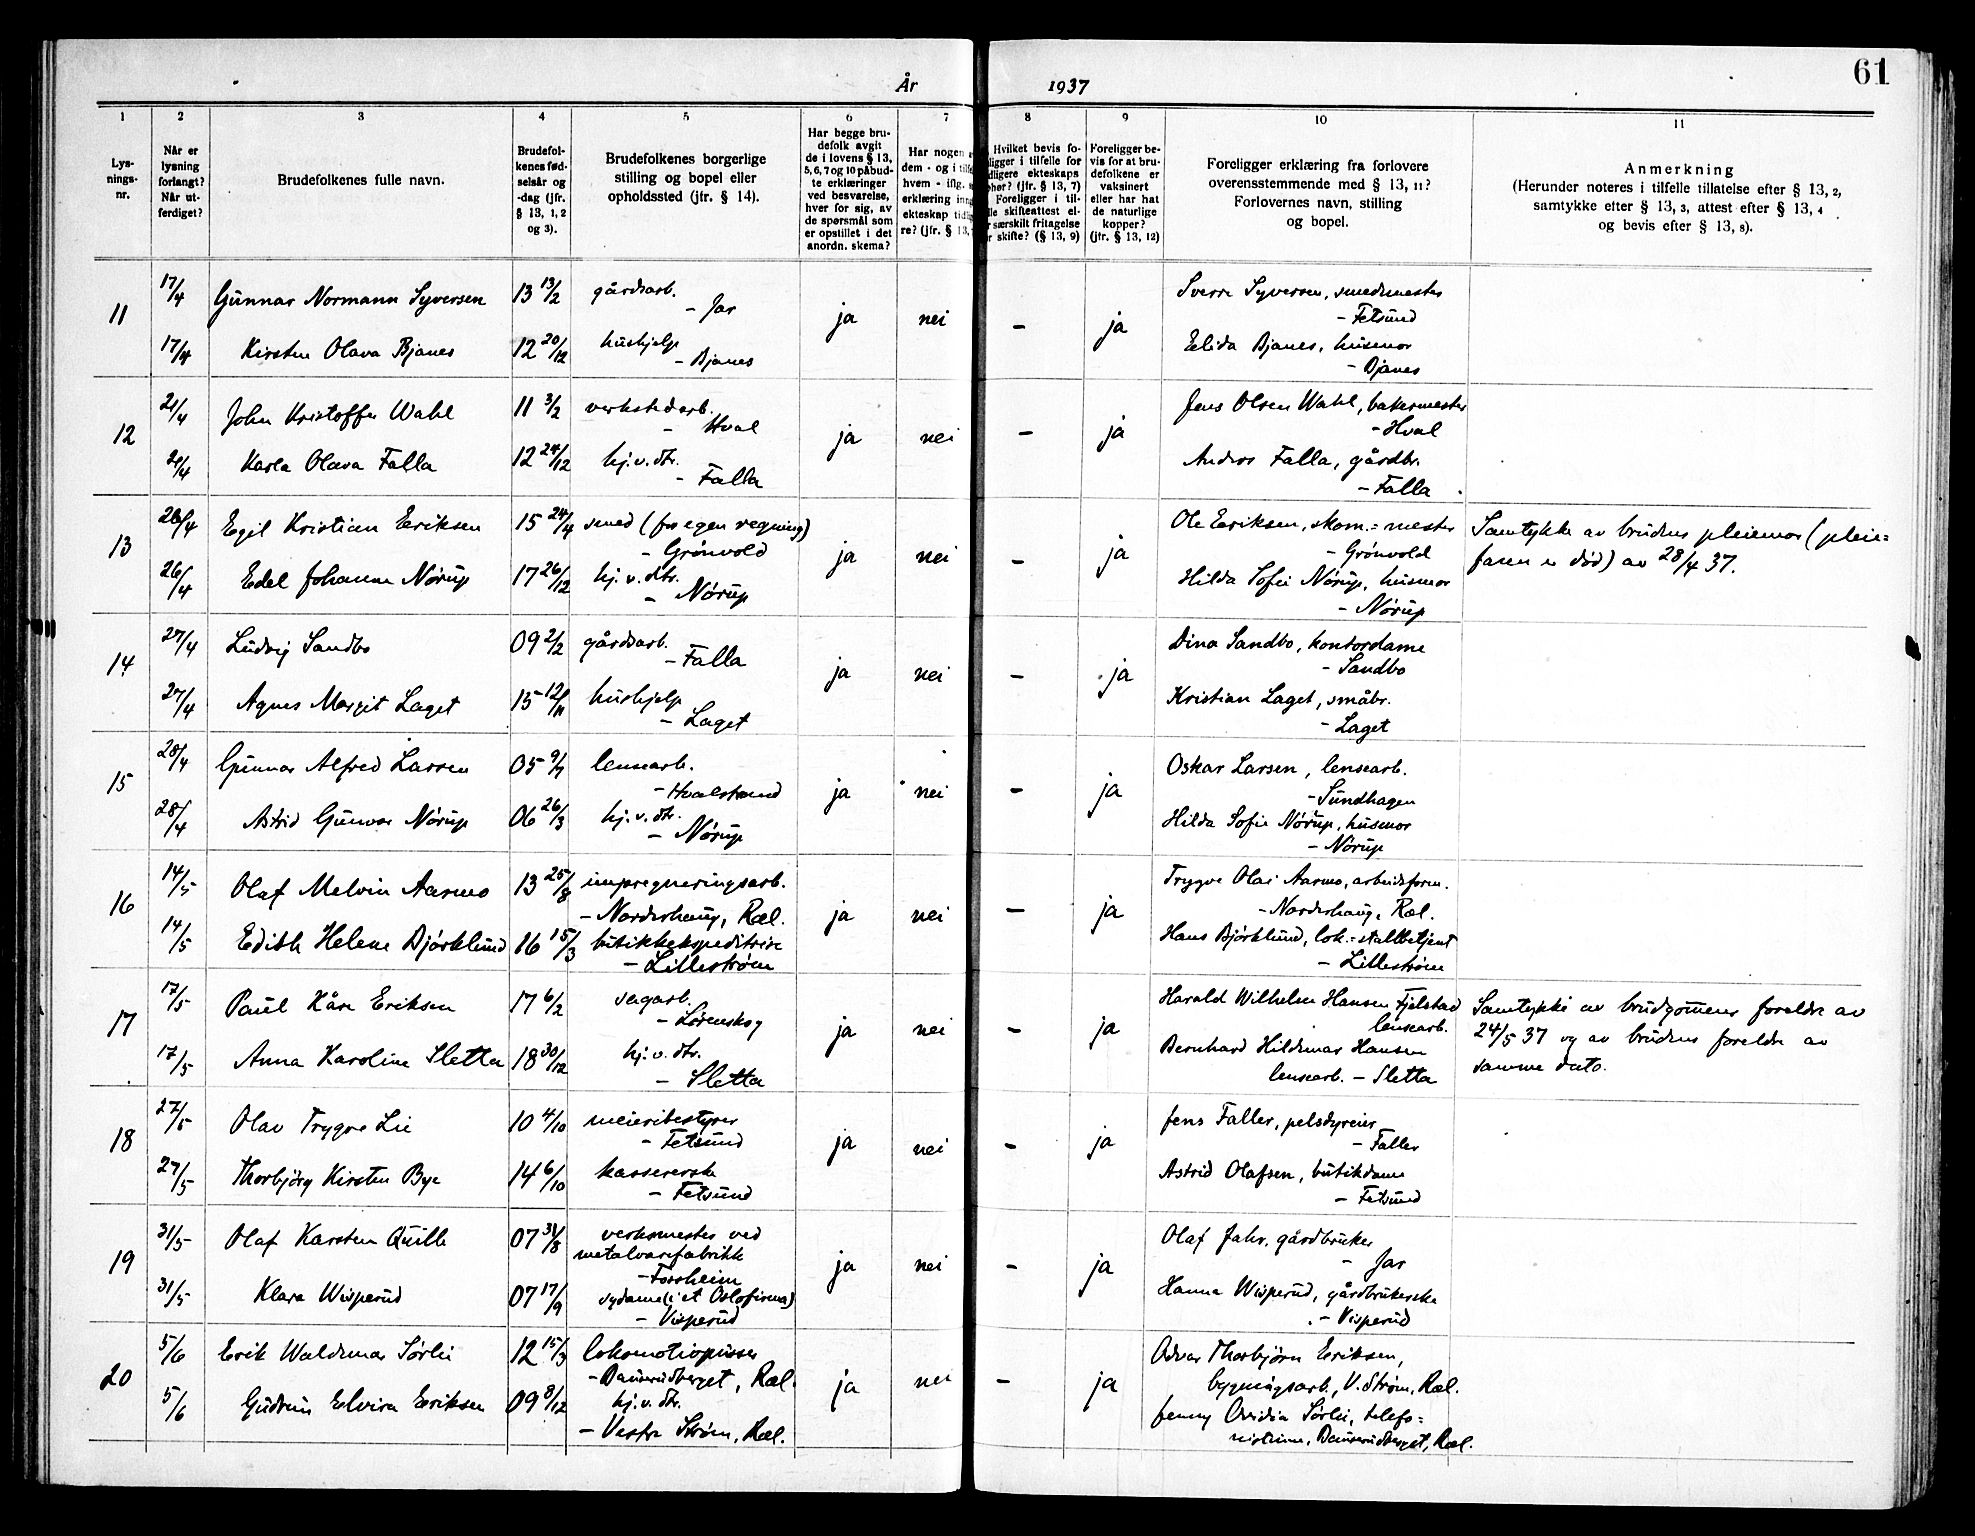 61
År 1937
1 2 3 4 5 6 7 8 9 10 11
Lys-
nings-
nr.
Når er
lysning
forlangt?
Når ut-
ferdiget?
Brudefolkenes fulle navn.
Brudefol-
kenes fød-
selsår og
-dag (jfr.
§ 13, 1, 2
og 3).
Brudefolkenes borgerlige
stilling og bopel eller
opholdssted (jfr. § 14).
Har begge bru-
defolk avgit
de i lovens § 13,
5, 6, 7 og 10 påbud-
te erklæringer
ved besvarelse,
hver for sig, av
de spørsmål som
er opstillet i det
anordn. skema?
Har nogen
dem - og i tilf
hvem - iflg.
erklæring inn
ekteskap tidli
re? (jfr. § 13,
Hvilket bevis fo-
ligger i tilfelle for
dligere ekteskaps
phør? (jfr. § 13, 7)
Foreligger i til-
lle skifteattest el-
r særskilt fritagelse
r skifte? (§ 13, 9)
Foreligger be-
vis for at bru-
defolkene er
vaksinert
eller har hat
de naturlige
kopper?
(jfr. § 13, 12)
Foreligger erklæring fra forlovere
overensstemmende med § 13, 11?
Forlovernes navn, stilling
og bopel.
Anmerkning
(Herunder noteres i tilfelle tillatelse efter § 13, 2,
samtykke efter § 13, 3, attest efter § 13, 4
og bevis efter § 13, 8).
11 17/4 Gunnar Normann Syversen 13 13/2 gårdsarb.
- Jar
ja nei - ja
Sverre Syversen, smedmester
- Fetsund
17/4 Kirsten Olava Bjanes 12 20/12 hushjelp
- Bjanes
Elida Bjanes, husmor
- Bjanes
12 21/4 John Kristoffer Wahl 11 3/2 verkstedarb.
- Hval
ja nei - ja
Jens Olsen Wahl, bakermester
- Hval
21/4 Karla Olava Falla 12 24/12 hj.v.dtr.
- Falla
Andreas Falla, gårdbr.
- Falla
13 26/4 Egil Kristian Eriksen 15 24/4 smed (for egen regning)
- Grønvold
ja nei - ja
Ole Eriksen, skom.=mester
- Grønvold
Samtykke av brudens pleiemor (pleie=
faren er død) av 28/4 37.
26/4 Edel Johanne Nørup 17 26/12 hj.v.dtr.
- Nørup
Hilda Sofie Nørup, husmor
- Nørup
14 27/4 Ludvig Sandbo 09 2/2 gårdsarb.
- Falla
ja nei - ja
Dina Sandbo, kontordame
- Sandbo
27/4 Agnes Margit Laget 15 12/11 hushjelp
- Laget
Kristian Laget, småbr.
- Laget
15 28/4 Gunnar Alfred Larsen 05 9/7 lensearb.
- Hvalstrand
ja nei - ja
Oskar Larsen, lensearb.
- Sundhagen
28/4 Astrid Gunvor Nørup 06 26/3 hj.v.dtr.
- Nørup
Hilda Sofie Nørup, husmor
- Nørup
16 14/5 Olaf Melvin Aarmo 13 25/8 impregneringsarb.
- Nordshaug, Ræl.
ja nei - ja
Trygve Olai Aarmo, arbeidsform.
- Nordshaug, Ræl.
14/5 Edith Helene Bjørklund 16 15/3 butikkekspeditrise
- Lillestrøm
Hans Bjørklund, lok.=stallbetjent
- Lillestrøm
17 17/5 Paul Kåre Eriksen 17 6/2 sagarb.
- Lørenskog
ja nei - ja
Harald Wilhelm Hansen Fjelstad
lensearb.
Samtykke av brudgommens foreldre av
24/5 37 og av brudens foreldre av
samme dato.
17/5 Anna Karoline Sletta 18 30/12 hj.v.dtr.
- Sletta
Bernhard Hildemar Hansen
lensearb. - Sletta
18 27/5 Olav Trygve Lie 10 4/10 meieribestyrer
- Fetsund
ja nei - ja
Jens Faller, pelsdyreier
- Faller
27/5 Thorbjørg Kirsten Bye 14 6/10 kassererske
- Fetsund
Astrid Olafsen, butikdame
- Fetsund
19 31/5 Olaf Karsten Quille 07 31/8 verksmester ved
metalvarefabrikk
- Forsheim
ja nei - ja
Olaf Jahr, gårdbruker
- Jar
31/5 Klara Wisperud 07 17/9 sydame (i et Oslofirma)
- Visperud
Hanna Wisperud, gårdbrukerske
- Visperud
20 5/6 Erik Waldemar Sørlie 12 15/3 lokomotivpusser
- Damerudberget, Ræl.
ja nei - ja
Odvar Thorbjørn Eriksen,
bygningsarb., V. Strøm, Ræl.
5/6 Gudrun Elvira Eriksen 09 8/12 hj.v.dtr.
- Vestre Strøm, Ræl.
Jenny Ovidia Sørlie, telefo=
nistinne, Damerudberget, Ræl.